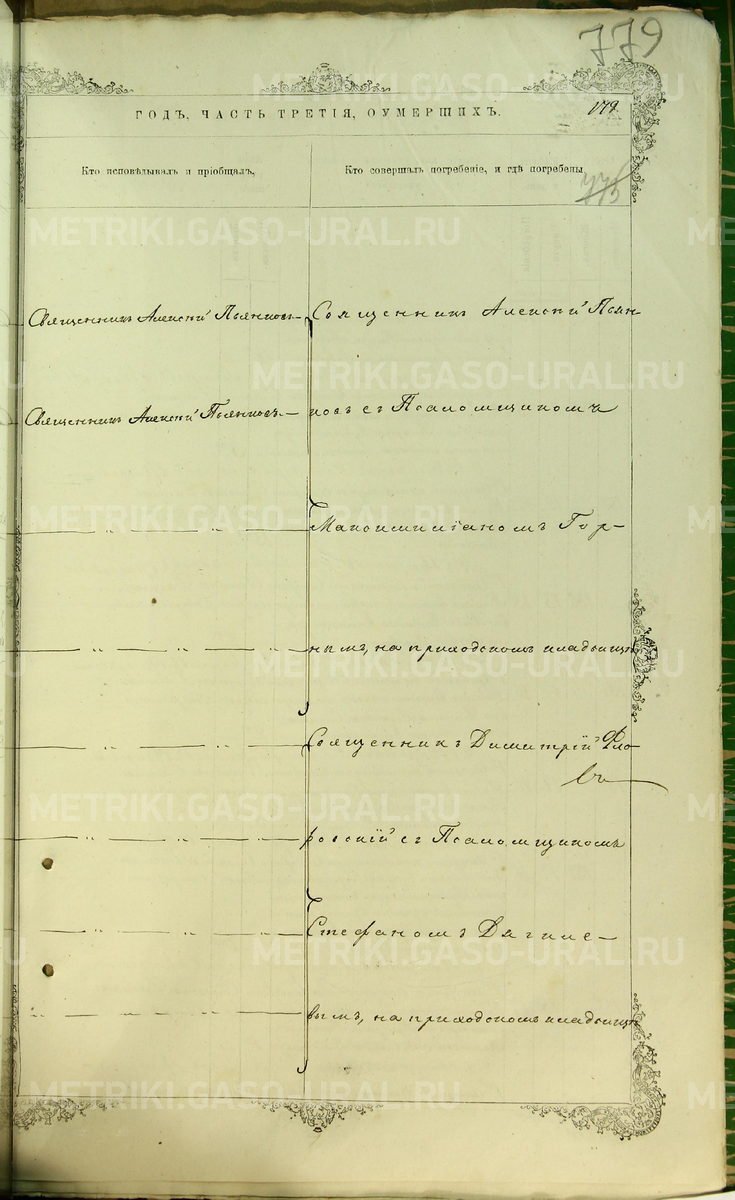 779
179
ГОДЪ, ЧАСТЬ ТРЕТІЯ, ОУМЕРШИХЪ.
Кто исповѣдывалъ и пріобщалъ.
Кто совершалъ погребеніе, и гдѣ погребены.
775
Священникъ Алексій Пьянковъ
Священникъ Алексій Пьян-
Священникъ Алексій Пьянковъ
ковъ съ Псаломщикомъ
— " — " — " —
Максимиліаномъ Гор-
— " — " — " —
нымъ, на приходскомъ кладбищѣ
— " — " — " —
Священникъ Димитрій Фло-
— " — " — " —
ровскій съ Псаломщикомъ
— " — " — " —
Стефаномъ Дягиле-
— " — " — " —
вымъ, на приходскомъ кладбищѣ
METRIKI.GASO-URAL.RU